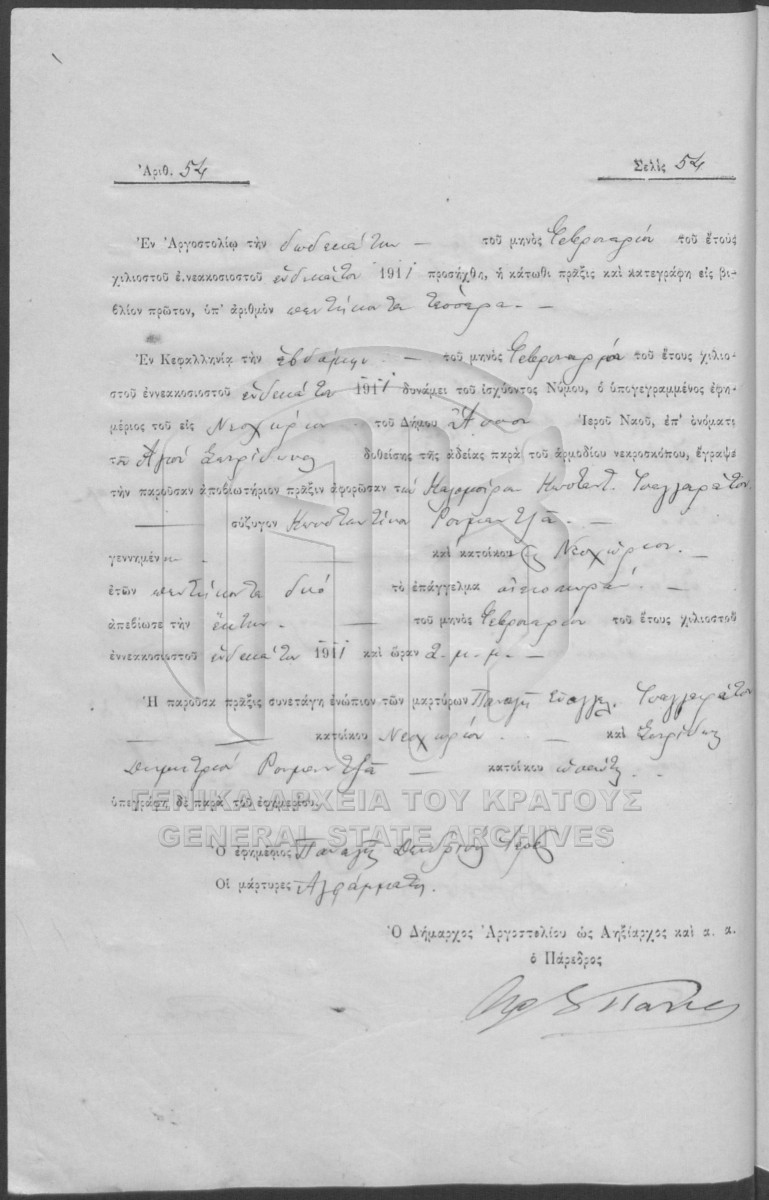 Ἀριθ. 54
Σελὶς 54
Ἐν Ἀργοστολίῳ τὴν δωδεκάτην — τοῦ μηνὸς Φεβρουαρίου τοῦ ἔτους
χιλιοστοῦ ἐνεακοσιοστοῦ ἑνδεκάτου 1911 προσήχθη, ἡ κάτωθι πρᾶξις καὶ κατεγράφη εἰς βι-
βλίον πρῶτον, ὑπ' ἀριθμὸν πεντήκοντα τέσσερα. —
Ἐν Κεφαλληνίᾳ τὴν ἑβδόμην. — τοῦ μηνὸς Φεβρουαρίου τοῦ ἔτους χιλιο-
στοῦ ἐννεακοσιοστοῦ ἑνδεκάτου 1911 δυνάμει τοῦ ἰσχύοντος Νόμου, ὁ ὑπογεγραμμένος ἐφη-
μέριος τοῦ εἰς Νεοχώριον τοῦ Δήμου Ἱεροῦ Ναοῦ, ἐπ' ὀνόματι
τοῦ Ἁγίου Σπυρίδωνος δοθείσης τῆς ἀδείας παρὰ τοῦ ἁρμοδίου νεκροσκόπου, ἔγραψε
τὴν παροῦσαν ἀποβιωτήριον πρᾶξιν ἀφορῶσαν τὴν Καλομοίραν Κωσταντ. Τσαγγαράτου
— σύζυγον Κωνσταντίνου Ρουμαντζᾶ. —
γεννημέν — καὶ κατοίκου Νεοχώριον. —
ἐτῶν πεντήκοντα δυό τὸ ἐπάγγελμα οἰκοκυρά. —
ἀπεβίωσε τὴν ἕκτην. — τοῦ μηνὸς Φεβρουαρίου τοῦ ἔτους χιλιοστοῦ
ἐννεακοσιοστοῦ ἑνδεκάτου 1911 καὶ ὥραν 2. μ. μ. —
Ἡ παροῦσα πρᾶξις συνετάγη ἐνώπιον τῶν μαρτύρων Παναγῆ Εὐαγγ. Τσαγγαράτου
— — κατοίκου Νεοχωρίου . — καὶ Σπυρίδων
Δημητρίου Ρουμαντζᾶ — κατοίκου
ὑπεγράφη δὲ παρὰ τοῦ ἐφημερίου.
ΓΕΝΙΚΑ ΑΡΧΕΙΑ ΤΟΥ ΚΡΑΤΟΥΣ
GENERAL STATE ARCHIVES
Ὁ ἐφημέριος Παναγῆς
Οἱ μάρτυρες Ἀγράμματοι.
Ὁ Δήμαρχος Ἀργοστολίου ὡς Ληξίαρχος καὶ α. α.
ὁ Πάρεδρος